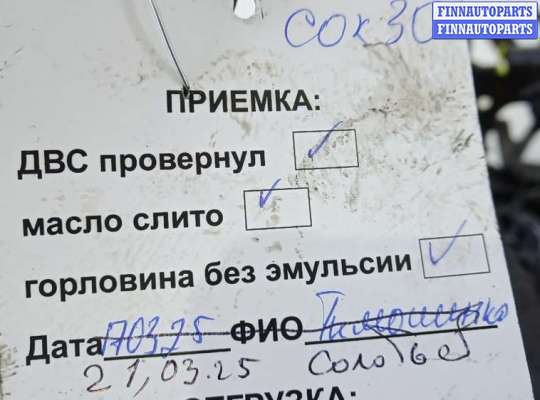 FINNAUTOPARTS
FINNAUTOPARTS
сок30
ПРИЕМКА:
ДВС провернул
масло слито
горловина без эмульсии
Дата 17.03.25 ФИО Тимошенко
21,03.25 Соловьев